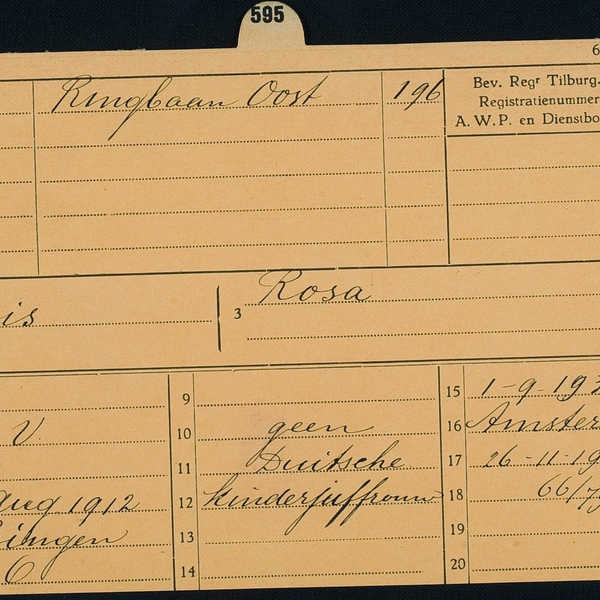 595
6
Ringbaan Oost 196
Bev. Regr Tilburg.
Registratienummer
A.W.P. en Dienstbo
is 3 Rosa
9 15 1-9-193
V 10 geen 16 Amster
11 Duitsche 17 26-11-19
aug 1912 12 kinderjuffrouw 18 66/
ingen 13 19
6 14 20